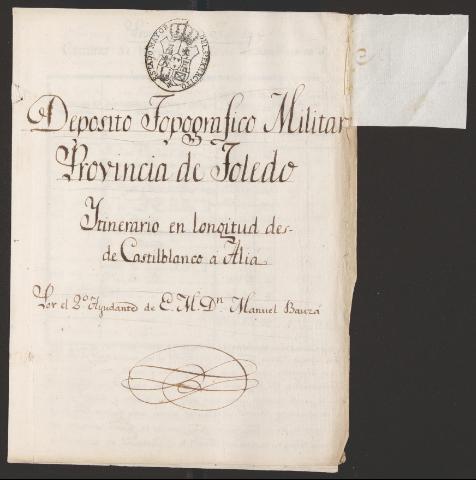 ESTADO MAYOR DEL EJERCITO
Deposito Topografico Militar
Provincia de Toledo
Itinerario en longitud des-
de Castilblanco a Alia
Por el 2º Ayudante de E. M. Dn. Manuel Bauzá